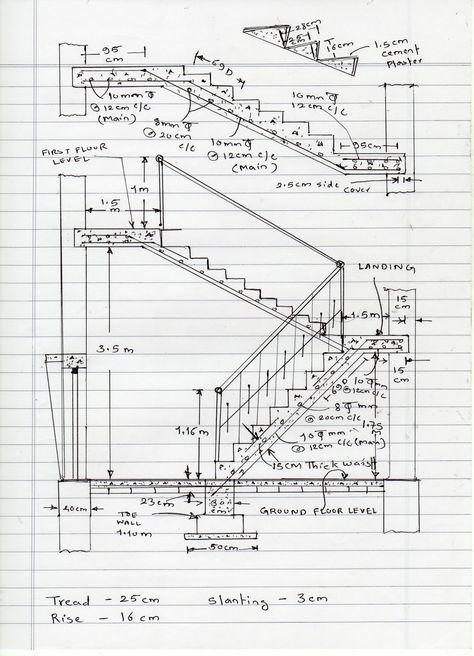 28cm
25
T
16cm
1.5cm
cement
plaster
95
cm
69D
10mm Φ
@ 12cm c/c
(Main)
8mm Φ
@ 20cm
c/c
10mm Φ
@ 12cm c/c
(Main)
10mm Φ
12cm c/c
95cm
2.5cm side
cover
FIRST FLOOR
LEVEL
1m
1.5
m
LANDING
15
cm
1.5m
3.5m
15
cm
69D
10 Φ mm
@ 12cm c/c
8 Φ mm
@ 20cm c/c
1.75
m
10 Φ mm
@ 12cm c/c (Main)
1.16m
15cm Thick waist
23cm
30
cm
40cm
TOE
WALL
1.10m
GROUND FLOOR LEVEL
50cm
Tread - 25cm
Slanting - 3cm
Rise - 16cm